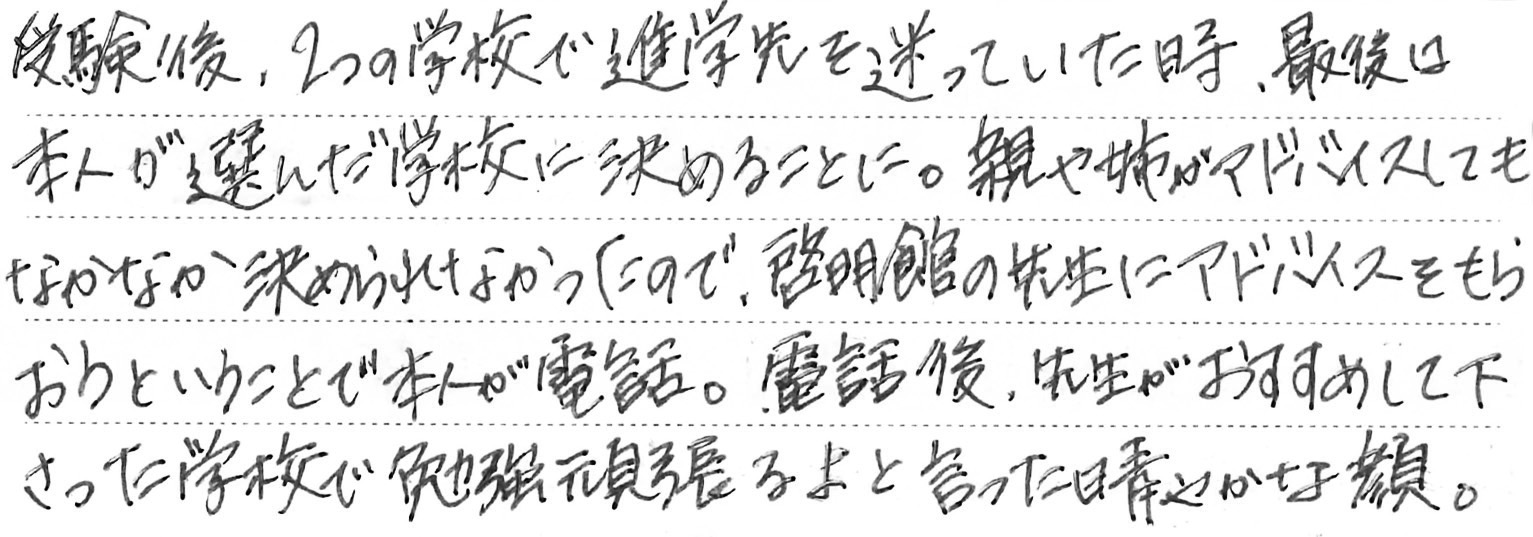 受験後、2つの学校で進学先を迷っていた時、最後は
本人が選んだ学校に決めることに。親や姉がアドバイスしても
なかなか決められなかったので、啓明館の先生にアドバイスをもら
おうということで本人が電話。電話後、先生がおすすめして下
さった学校で勉強頑張るよと言った晴やかな顔。